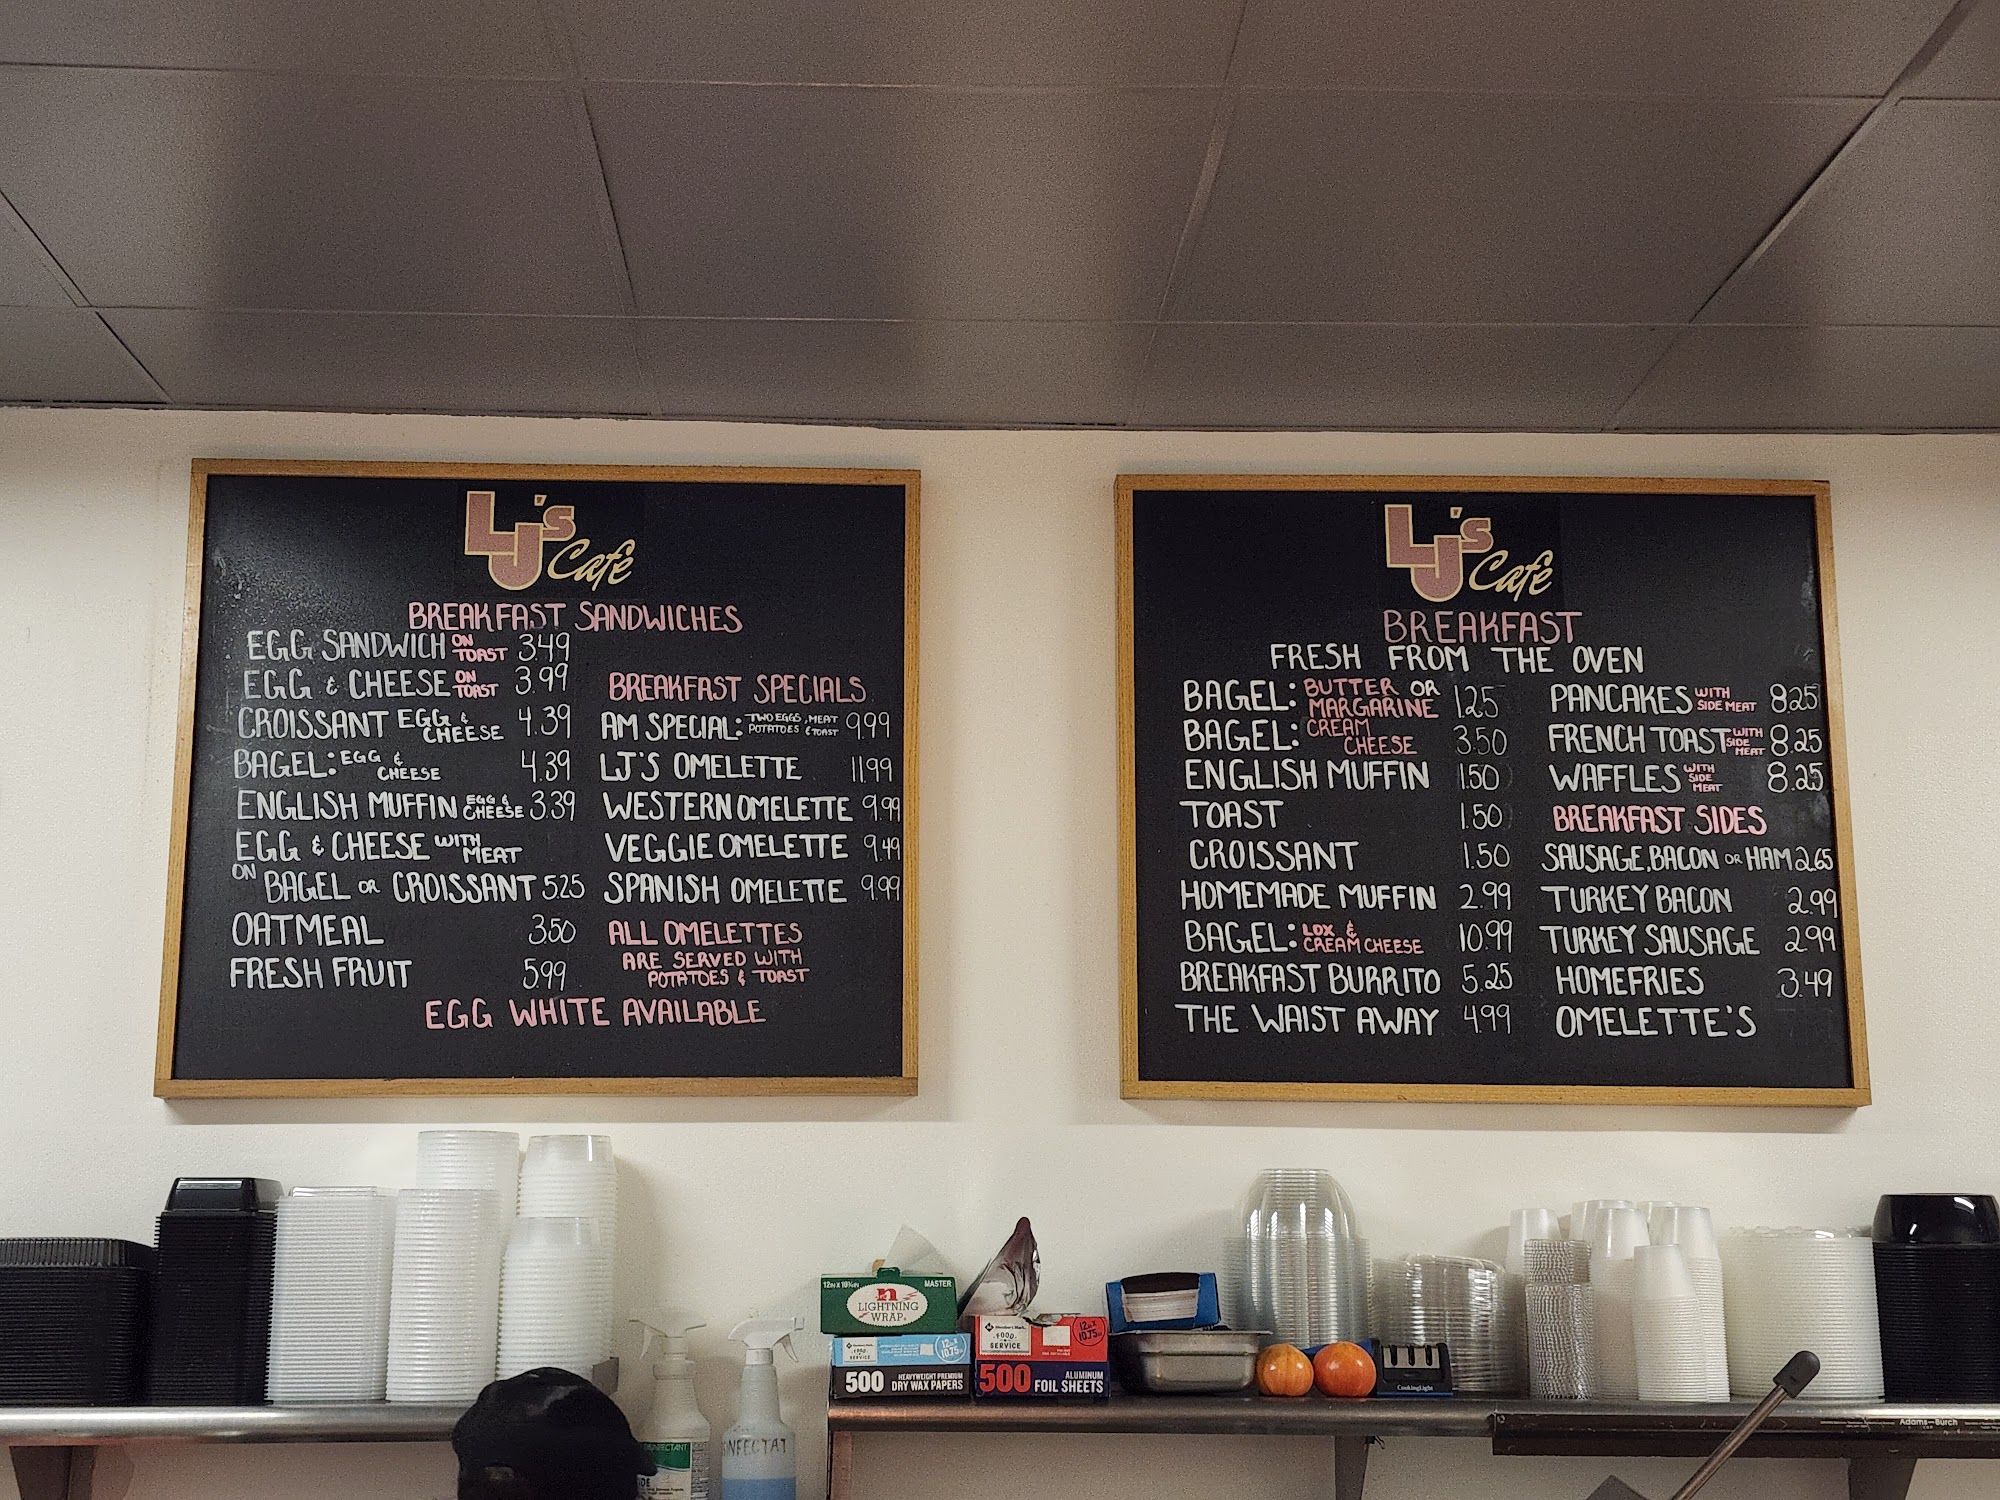 LJ's Café
BREAKFAST SANDWICHES
EGG SANDWICH ON TOAST 3.49
EGG & CHEESE ON TOAST 3.99
CROISSANT EGG & CHEESE 4.39
BAGEL: EGG & CHEESE 4.39
ENGLISH MUFFIN EGG & CHEESE 3.39
EGG & CHEESE WITH MEAT
ON BAGEL OR CROISSANT 5.25
OATMEAL 3.50
FRESH FRUIT 5.99
BREAKFAST SPECIALS
AM SPECIAL: TWO EGGS, MEAT POTATOES & TOAST 9.99
LJ'S OMELETTE 11.99
WESTERN OMELETTE 9.99
VEGGIE OMELETTE 9.49
SPANISH OMELETTE 9.99
ALL OMELETTES
ARE SERVED WITH
POTATOES & TOAST
EGG WHITE AVAILABLE
LJ's Café
BREAKFAST
FRESH FROM THE OVEN
BAGEL: BUTTER OR MARGARINE 1.25
BAGEL: CREAM CHEESE 3.50
ENGLISH MUFFIN 1.50
TOAST 1.50
CROISSANT 1.50
HOMEMADE MUFFIN 2.99
BAGEL: LOX & CREAM CHEESE 10.99
BREAKFAST BURRITO 5.25
THE WAIST AWAY 4.99
PANCAKES WITH SIDE MEAT 8.25
FRENCH TOAST WITH SIDE MEAT 8.25
WAFFLES WITH SIDE MEAT 8.25
BREAKFAST SIDES
SAUSAGE, BACON OR HAM 2.65
TURKEY BACON 2.99
TURKEY SAUSAGE 2.99
HOMEFRIES 3.49
OMELETTE'S
MASTER
LIGHTNING
WRAP
FOOD
SERVICE
12IN X 10.75IN
500 HEAVYWEIGHT PREMIUM
DRY WAX PAPERS
Member's Mark
FOOD
SERVICE
12IN X 10.75IN
500 ALUMINUM
FOIL SHEETS
CookingLight
Adams-Burch
NFECTAT